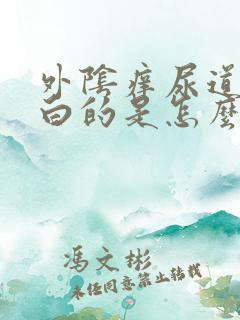 外陰痒尿道
白的是怎麼
馮文彬
未经同意禁止转载